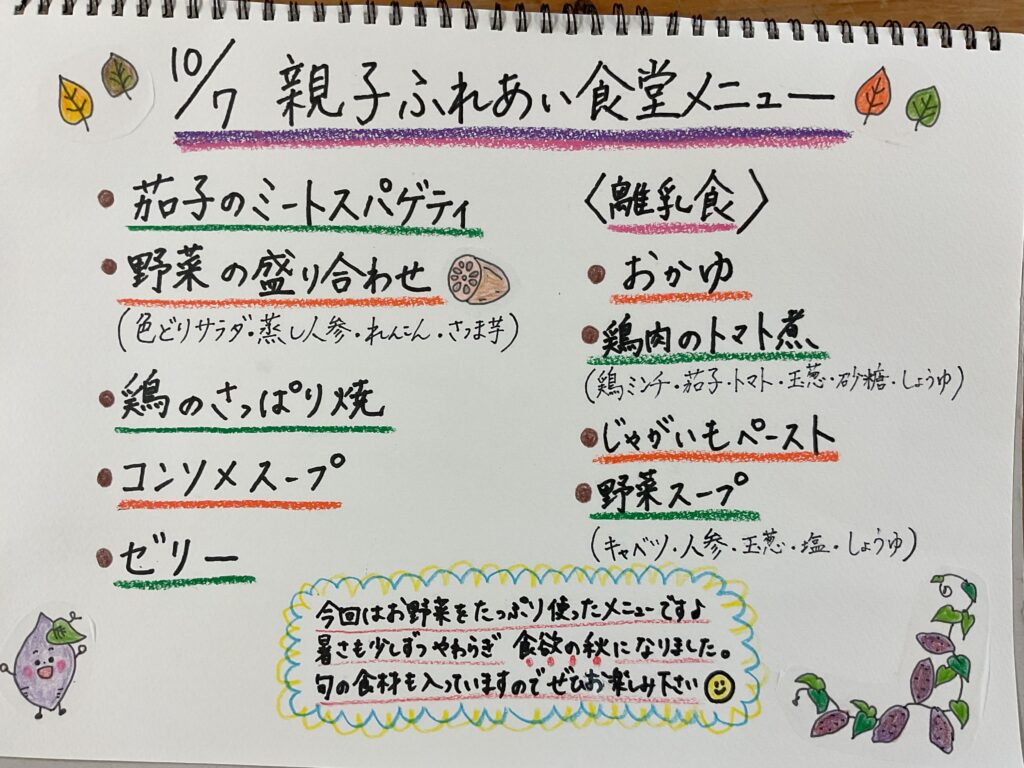 10/7 親子ふれあい食堂メニュー
・茄子のミートスパゲティ
・野菜の盛り合わせ
(色どりサラダ・蒸し人参・れんこん・さつま芋)
・鶏のさっぱり焼
・コンソメスープ
・ゼリー
〈離乳食〉
・おかゆ
・鶏肉のトマト煮
(鶏ミンチ・茄子・トマト・玉葱・砂糖・しょうゆ)
・じゃがいもペースト
・野菜スープ
(キャベツ・人参・玉葱・塩・しょうゆ)
今回はお野菜をたっぷり使ったメニューですよ
暑さも少しずつやわらぎ 食欲の秋になりました。
旬の食材も入っていますのでぜひお楽しみ下さい